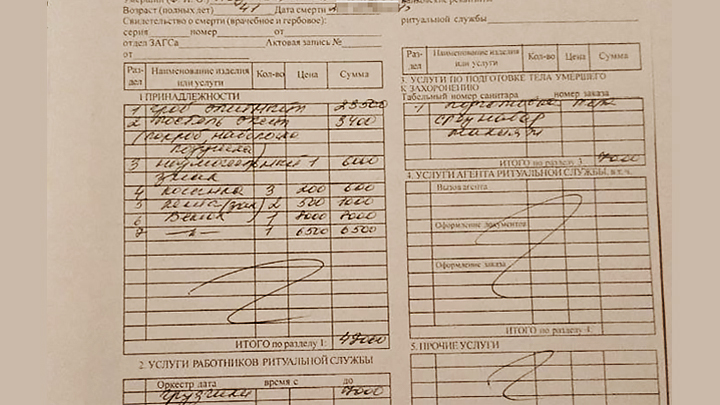 Возраст (полных лет) 41 Дата смерти
Свидетельство о смерти (врачебное и гербовое):
серия номер от
отдел ЗАГСа Актовая запись №
от
Раздел Наименование изделия или услуги Кол-во Цена Сумма
1 ПРИНАДЛЕЖНОСТИ
1 23500
2 постель 3400
(покров наволочка
подушка)
3 1 600
знак
4 косынка 3 200 600
5 лента (зак) 2 500 1000
6 Венок 1 7000 7000
7 -"- 1 6500 6500
ИТОГО по разделу 1:
2. УСЛУГИ РАБОТНИКОВ РИТУАЛЬНОЙ СЛУЖБЫ
Оркестр дата время с до
грузчики 7000
ритуальной службы
Раздел Наименование изделия или услуги Кол-во Цена Сумма
3. УСЛУГИ ПО ПОДГОТОВКЕ ТЕЛА УМЕРШЕГО
К ЗАХОРОНЕНИЮ
Табельный номер санитара номер заказа
1 подготовка тела
ИТОГО по разделу 3 7000
4. УСЛУГИ АГЕНТА РИТУАЛЬНОЙ СЛУЖБЫ, в т. ч.
Вызов агента
Оформление документов
Оформление заказа
ИТОГО по разделу 4:
5. ПРОЧИЕ УСЛУГИ